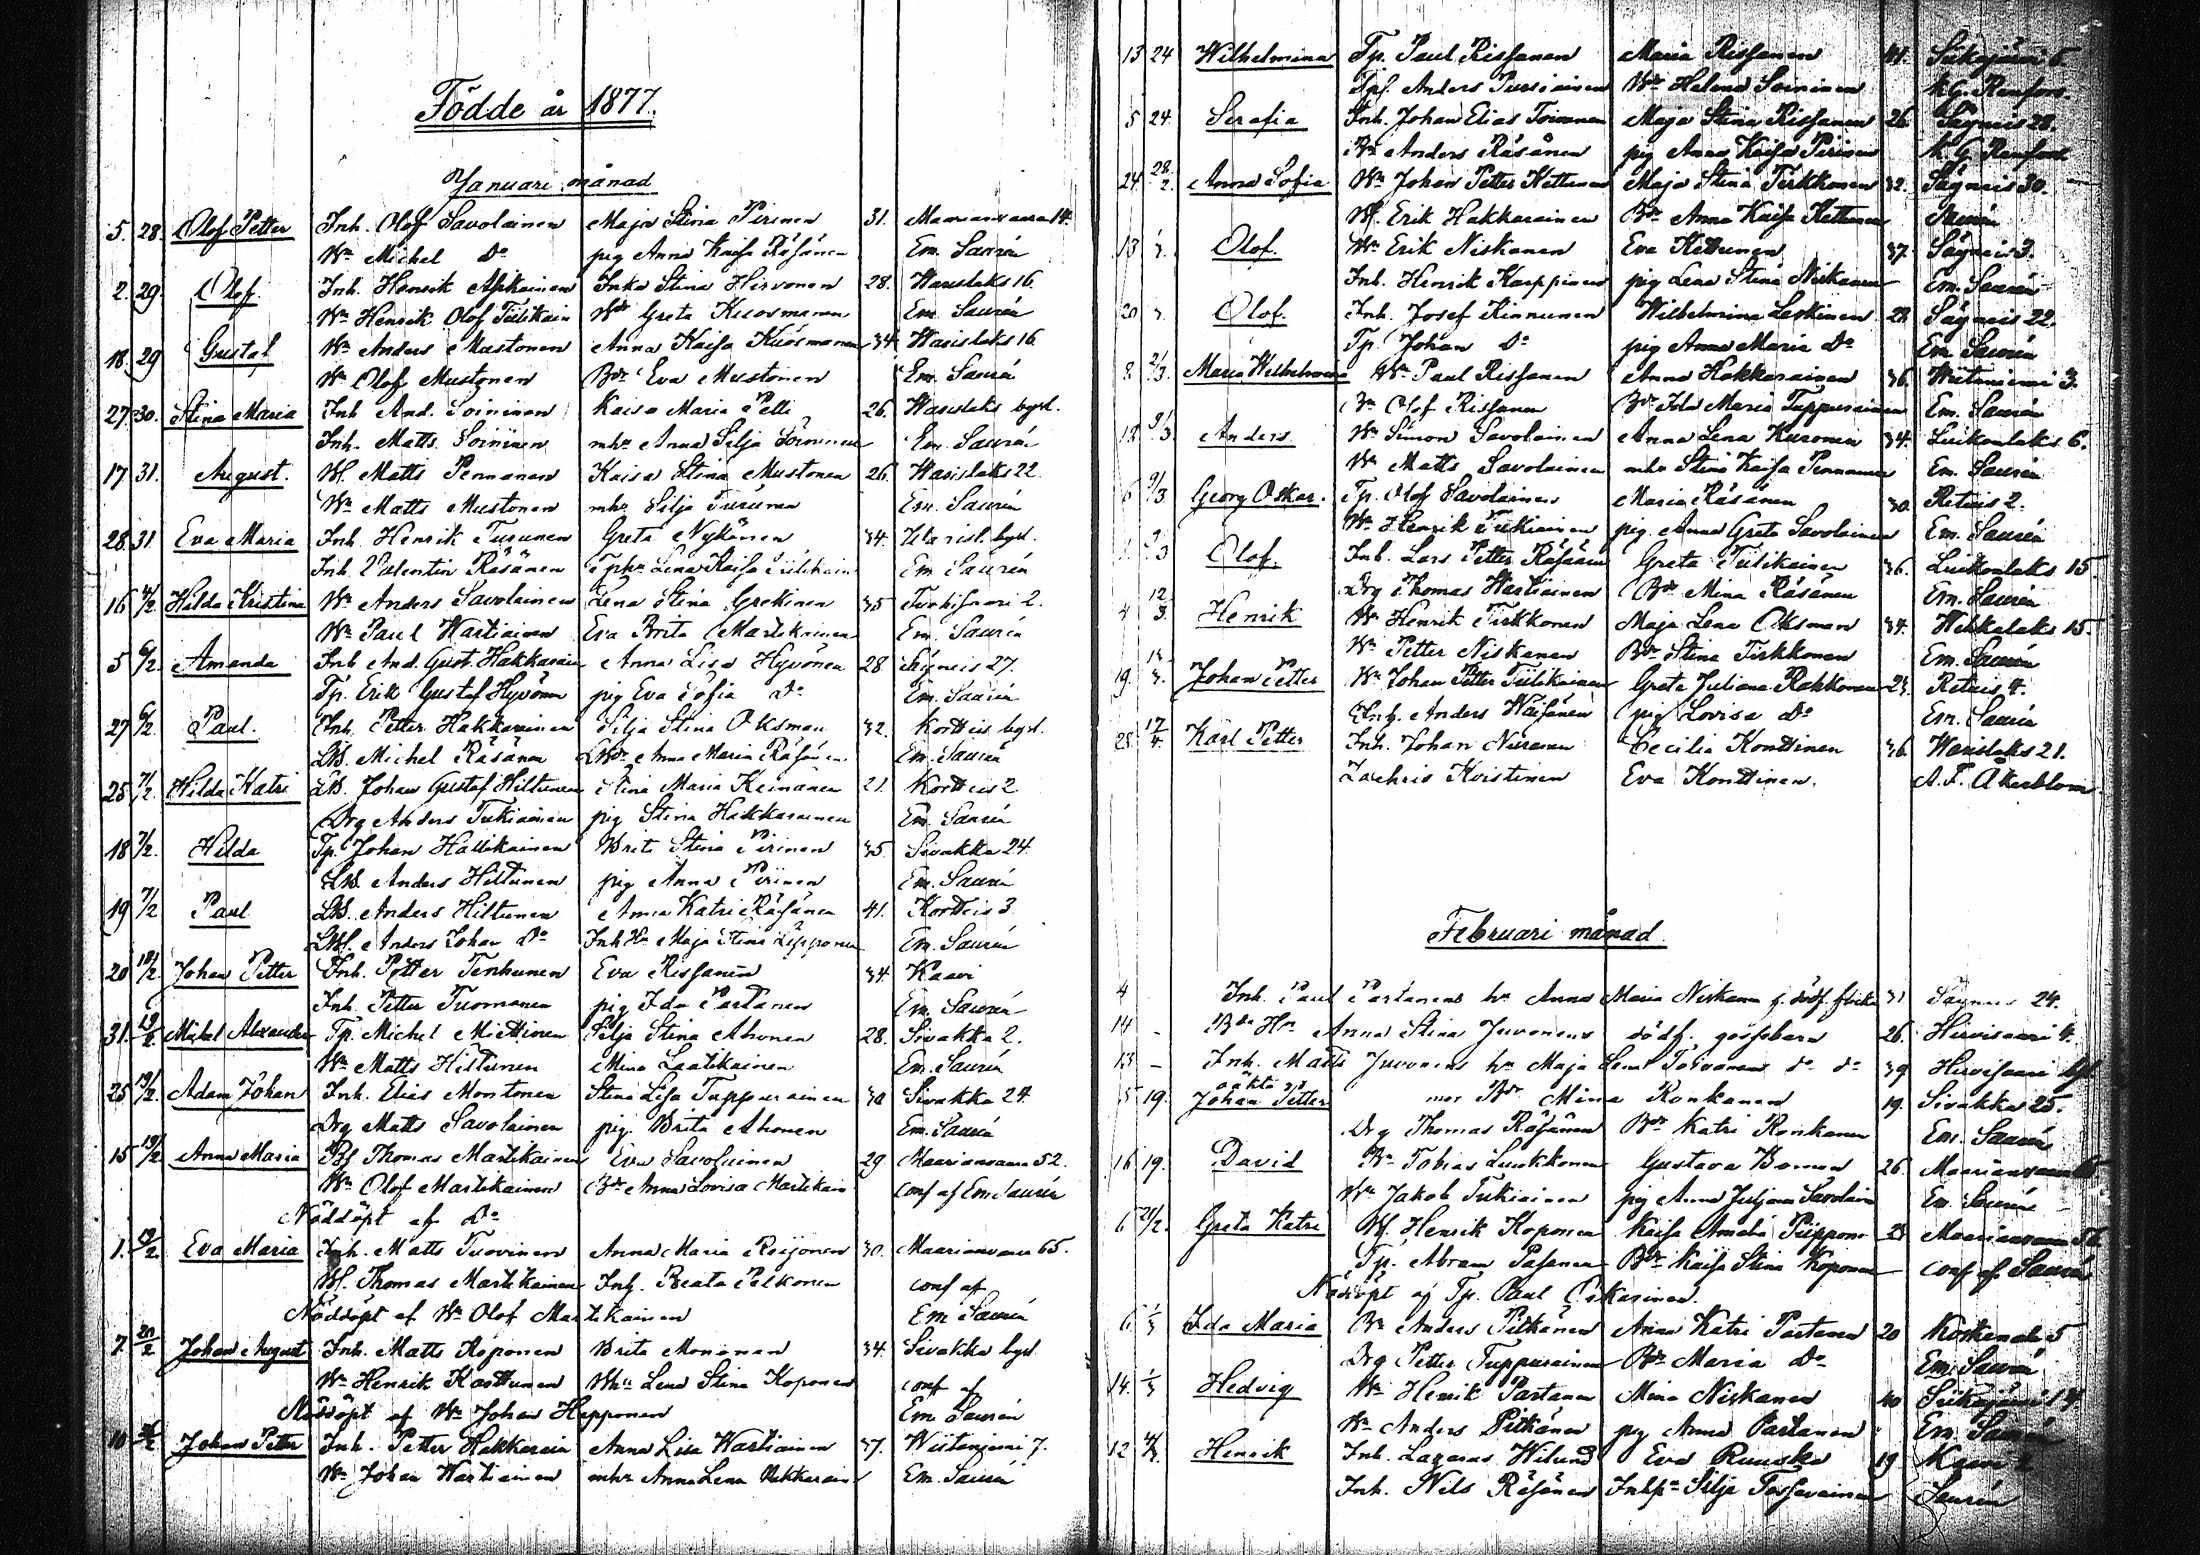 Födde år 1877.
Januari månad
5. 28. Olof Petter Inh. Olof Savolainen Maja Stina Pirinen 31. Maarianvaara 14.
Wn Michel Do pig Anna Kaisa Räsänen Em. Saurén
2. 29. Olof Inh. Henrik Inka Stina Hirvonen 28. Wasislaks 16.
Wn Henrik Olof Tiilikain Wdr Greta Kuosmanen Em. Saurén
18. 29 Gustaf Wn Anders Mustonen Anna Kaisa Kuosmanen 34. Wasislaks 16
Wn Olof Mustonen Bdr Eva Mustonen Em. Saurén
27. 30. Stina Maria Inh And. Soininen Kaisa Maria Pelli 26. Wasislaks byd.
Inh. Matts Soininen mhr Anna Silja Soininen Em. Saurén
17 31. August. Wf. Matts Pennanen Kaisa Stina Mustonen 26. Wasislaks 22.
Wn Matts Mustonen mhr Silja Turunen Em. Saurén
28. 31 Eva Maria Inh. Henrik Turunen Greta Nykänen 34. byd.
Inh. Valentin Räsänen Lena Kaisa Tiilikain Em Saurén
16 4/2 Hilda Kristina Wn Anders Savolainen Lena Stina Grekinen 35 2.
Wn Paul Wartiainen Eva Brita Martikainen Em. Saurén
5 6/2 Amanda Inh And. Gust. Hakkarain Anna Lisa Hyvönen 28 Säyneis 27.
Tp. Erik Gustaf Hyvönen pig Eva Sofia Do Em. Saurén
27 6/2. Paul. Inh. Petter Hakkarainen Silja Stina Oksman 32. Kortteis byd.
Lbd. Michel Räsänen Anna Maria Räsänen Em. Saurén
25 7/2. Hilda Katri Lbd. Johan Gustaf Hiltunen Stina Maria Keinänen 21. Kortteis 2
Drg Anders Tukiainen pig Stina Hakkarainen Em. Saurén
18 7/2. Hilda Tp. Johan Hallikainen Brita Stina Pirinen 35 Sivakka 24.
Lbd. Anders Hiltunen pig Anna Piirinen Em. Saurén
19 7/2 Paul Lbd. Anders Hiltunen Anna Katri Räsänen 41. Kortteis 3.
Anders Johan Do Inh Hu Maja Stina Lipponen Em. Saurén
20 Johan Petter Inh. Petter Tenhunen Eva Rissanen 34. Kaavi
Inh. Petter Tuomanen pig Ida Partanen Em. Saurén
31. Michel Alexander Tp. Michel Miettinen Silja Stina Ahonen 28. Sivakka 2.
Wn Matts Hiltunen Mina Laatikainen Em. Saurén
25 19/2. Adam Johan Inh. Elias Montonen Stina Lisa Tuppurainen 30 Sivakka 24.
Drg Matts Savolainen pig. Brita Ahonen Em. Saurén
15 19/2 Anna Maria Bf Thomas Martikainen Eva Savolainen 29 Maarianvaara 52.
Wn Olof Martikainen Bdr Anna Lovisa Martikain conf af Em Saurén
Nöddöpt af Do
1. Eva Maria Inh. Matts Tuovinen Anna Maria Reijonen 30. Maarianvaara 65.
Wf. Thomas Martikainen Inh. Beata Pelkonen conf af
Nöddöpt af Wn Olof Martikainen Em Saurén
7. Johan August Inh. Matts Koponen Brita Mononen 34. Sivakka byd.
Wn Henrik Karttunen Lena Stina Koponen conf af
Nöddöpt af Wn Johan Happonen Em Saurén
10 Johan Petter Inh. Petter Hakkarain Anna Lisa Wartiainen 37. Wiitaniemi 7.
Wn Johan Wartiainen mhr Anna Lena Hakkarain Em. Saurén
13 24 Wilhelmina Tp. Paul Rissanen Maria Rissanen 41. Siikajärvi 6.
Anders Pursiainen Wdr Helena Soininen K. G. Renfors.
5 24. Serafia Inh. Johan Elias Toivanen Maja Stina Rissanen 26. Säyneis 28.
Bn Anders Räsänen pig Anna Kaisa Pirinen K. G. Renfors
24 28/2. Anna Sofia Wn Johan Petter Kettunen Maja Stina Tirkkonen 32. Säyneis 30.
Wf. Erik Hakkarainen Bdr Anna Kaisa Kettunen Saurén
13 Olof. Wn Erik Niskanen Eva Kettunen 37. Säyneis 3.
Inh. Henrik Karppinen pig Lena Stina Niskanen Em. Saurén
20 Olof. Inh. Josef Kinnunen Wilhelmina Leskinen 22. Säyneis 22.
Tp. Johan Do pig Anna Maria Do Em. Saurén
8. 2/3. Maria Wilhelmina Wn Paul Rissanen Anna Hakkarainen 36. Wiitaniemi 3.
Bn Olof Rissanen Bdr Ida Maria Tuppurainen Em. Saurén
12 Anders Wn Simon Savolainen Anna Lena Kuronen 34. Luikonlaks 6.
Wn Matts Savolainen mhr Stina Kaisa Pennanen Em. Saurén
6 Georg Oskar. Tp. Olof Savolainen Maria Räsänen 30. Retuis 2.
Wn Henrik Tukiainen pig. Anna Greta Savolainen Em. Saurén
Olof. Inh. Lars Petter Räsänen Greta Tiilikainen 36. Luikonlaks 15.
Drg Thomas Wartiainen Bdr Mina Räsänen Em. Saurén
4 12/3. Henrik Wn Henrik Tirkkonen Maja Lena Oksman 34. Wehkalaks 15.
Wn Petter Niskanen Bdr Stina Tirkkonen Em. Saurén
19. Johan Petter Wn Johan Petter Tiilikainen Greta Juliana Rakkonen 23. Retuis 4.
Anders Wäisänen pig Lovisa Do Em. Saurén
28. 17/4. Karl Petter Inh. Johan Cecilia Konttinen 36 Wasislaks 21.
Zachris Kristinen Eva Konttinen. A. F. Åkerblom.
Februari månad
4 Inh. Paul Partanens hu Anna Maria Niskanen f. dödf. flicka 31 Säyneis 24.
14 - Bdr Hu Anna Stina Juvonens dödf. gossebarn 26. Hirvisaari 4.
13 - Inh. Matts Juvonens hu Maja Lena Toivanen do do 39 Hirvisaari byd
15 19. oäkta Johan Petter mor Bdr Mina Ronkanen 19. Sivakka 25.
Drg Thomas Räsänen Bdr Katri Ronkanen Em. Saurén
16 19. David Bn Tobias Luukkonen Gustava Boman 26. Maarianvaara
Wn Jakob Tukiainen pig Anna Juljana Savolain Em. Saurén
6 21/2. Greta Katri Wf. Henrik Koponen Kaisa Amalia Piippone 28 Maarianvaara
Tp. Abram Pasanen Bdr Kaisa Stina Koponen conf af Saurén
Nöddöpt af Tp. Paul
6. 1/3 Ida Maria Bn Anders Pitkänen Anna Katri Partanen 20 5
Drg Petter Tuppurainen Bdr Maria Do Em. Saurén
14. 1/3 Hedvig Wn Henrik Partanen Mina Niskanen 40 Siikajärvi 14
Wn Anders Pitkänen pig Anna Partanen Em. Saurén
12 4/3 Henrik Inh. Lazarus Wilund Eva Ruuska 19. Kaavi 2
Inh. Nils Räsänen Silja Tossavainen Saurén